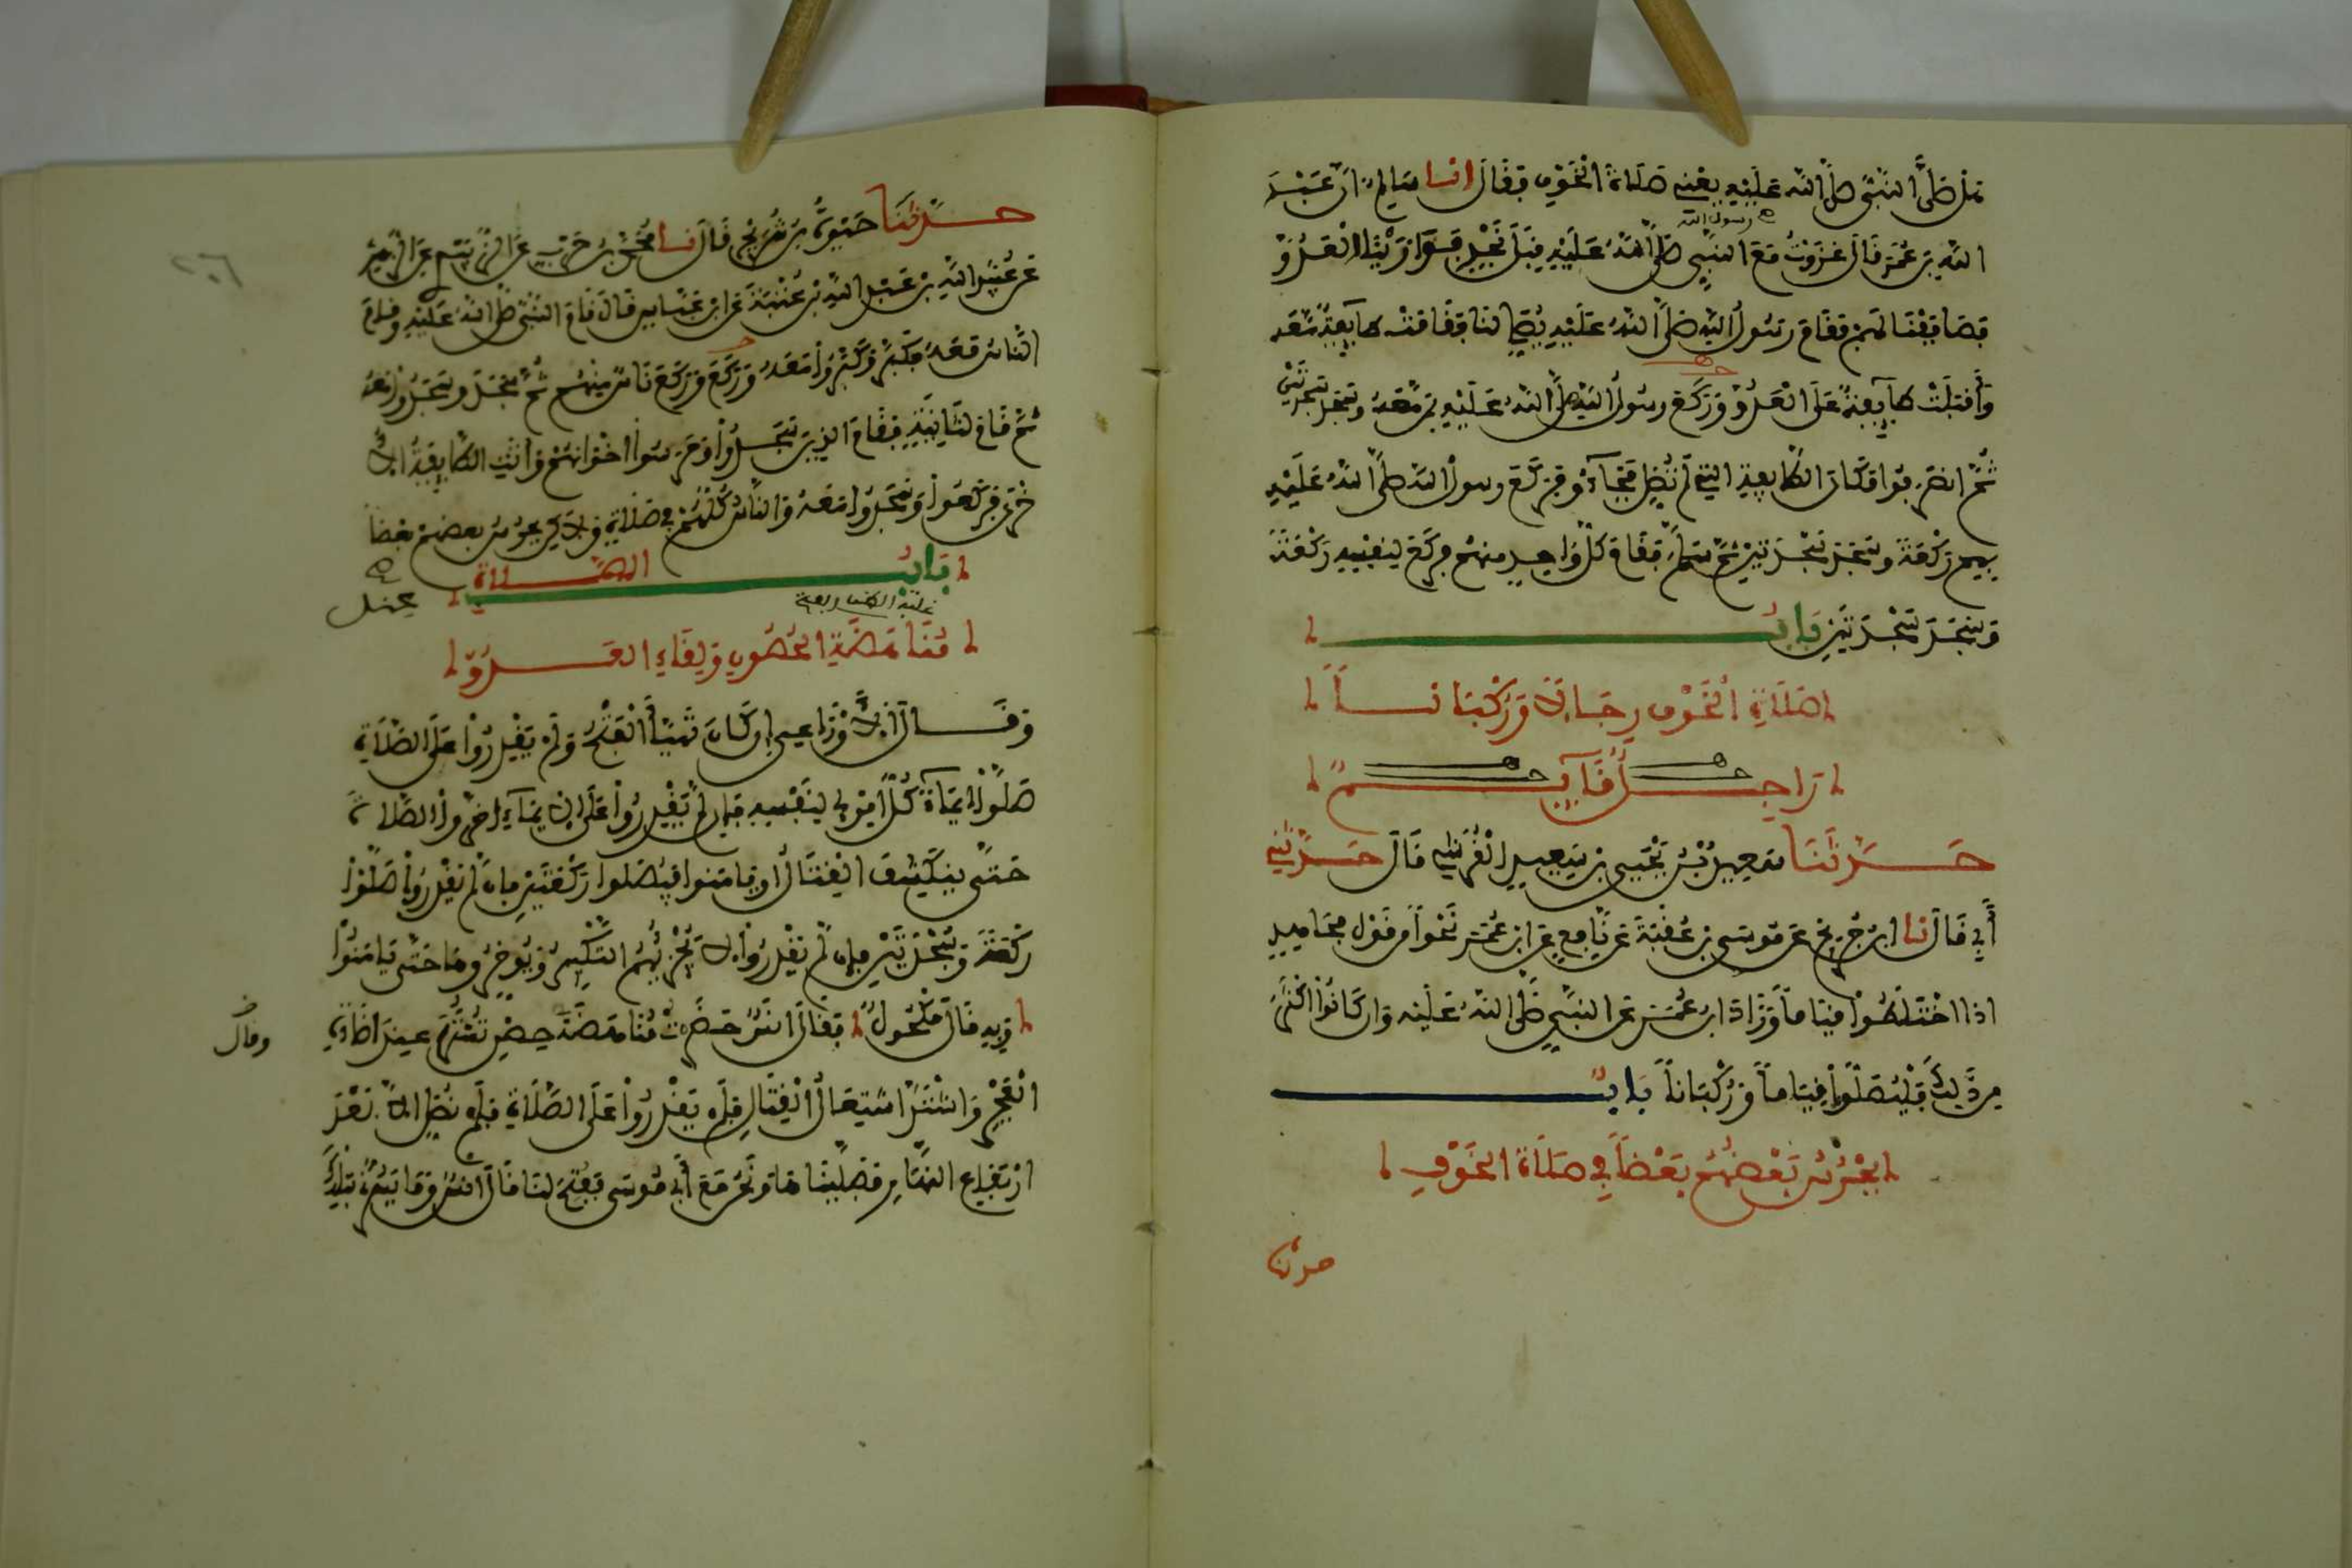 هل صلى النبي صلى الله عليه يعني صلاة الخوف فقال انا سالم ان عبد
رسول الله
الله بن عمر قال غزوت مع النبي صلى الله عليه قبل نجد فوازينا العدو
فصاففنا لهم فقام رسول الله صلى الله عليه يصلي لنا فقامت طايفة معه
وأقبلت طآيفة على العدو وركع رسول الله صلى الله عليه بمن معه وسجد سجدتين
ثم انصرفوا مكان الطايفة التي لم تصل فجآءو فركع رسول الله صلى الله عليه
بهم ركعة وسجد سجدتين ثم سلم فقام كل واحد منهم فركع لنفسه ركعة
وسجد سجدتين باب
صلاة الخوف رجالا وركبانا
راجل قآيم
حدثنا سعيد بن يحيى بن سعيد القرشي قال حدثني
أبي قال نا ابن جريج عن موسى بن عقبة عن نافع عن ابن عمر نحوا من قول مجاهد
اذا اختلطوا قياما وزاد ابن عمر عن النبي صلى الله عليه وان كانوا اكثر
من ذلك فليصلوا قياما وركبانا باب
يحرس بعضهم بعضا في صلاة الخوف
حدثنا
٢٠٦
حدثنا حيوة بن شريح قال نا محمد بن حرب عن الزبيدي عن الزهري
عن عبيد الله بن عبد الله بن عتبة عن ابن عباس قال قام النبي صلى الله عليه وقام
الناس معه فكبر وكبروا معه وركع وركع ناس منهم ثم سجد وسجدوا معه
ثم قام للثانية فقام الذين سجدوا وحرسوا اخوانهم وأتت الطايفة الا
خرى فركعوا وسجدوا معه والناس كلهم في صلاة ولاكن يحرس بعضهم بعضا
باب الصلاة
عند
مناهضة الحصون ولقاء العدو
وقال الاوزاعي ان كان تهيأ الفتح ولم يقدروا على الصلاة
صلوا ايمآء كل امرئ لنفسه فإن لم يقدروا على الايمآء اخروا الصلاة
حتى ينكشف القتال او يامنوا فيصلوا ركعتين فان لم يقدروا صلوا
ركعة وسجدتين فان لم يقدروا لا يجزيهم التكبير ويوخروها حتى يامنوا
وبه قال مكحول وقال انس حضرت مناهضة حصن تستر عند اضاءة
وقال
الفجر واشتد اشتعال القتال فلم يقدروا على الصلاة فلم نصل الا بعد
ارتفاع النهار فصليناها ونحن مع أبي موسى ففتح لنا قال انس وما يسرني بتلك